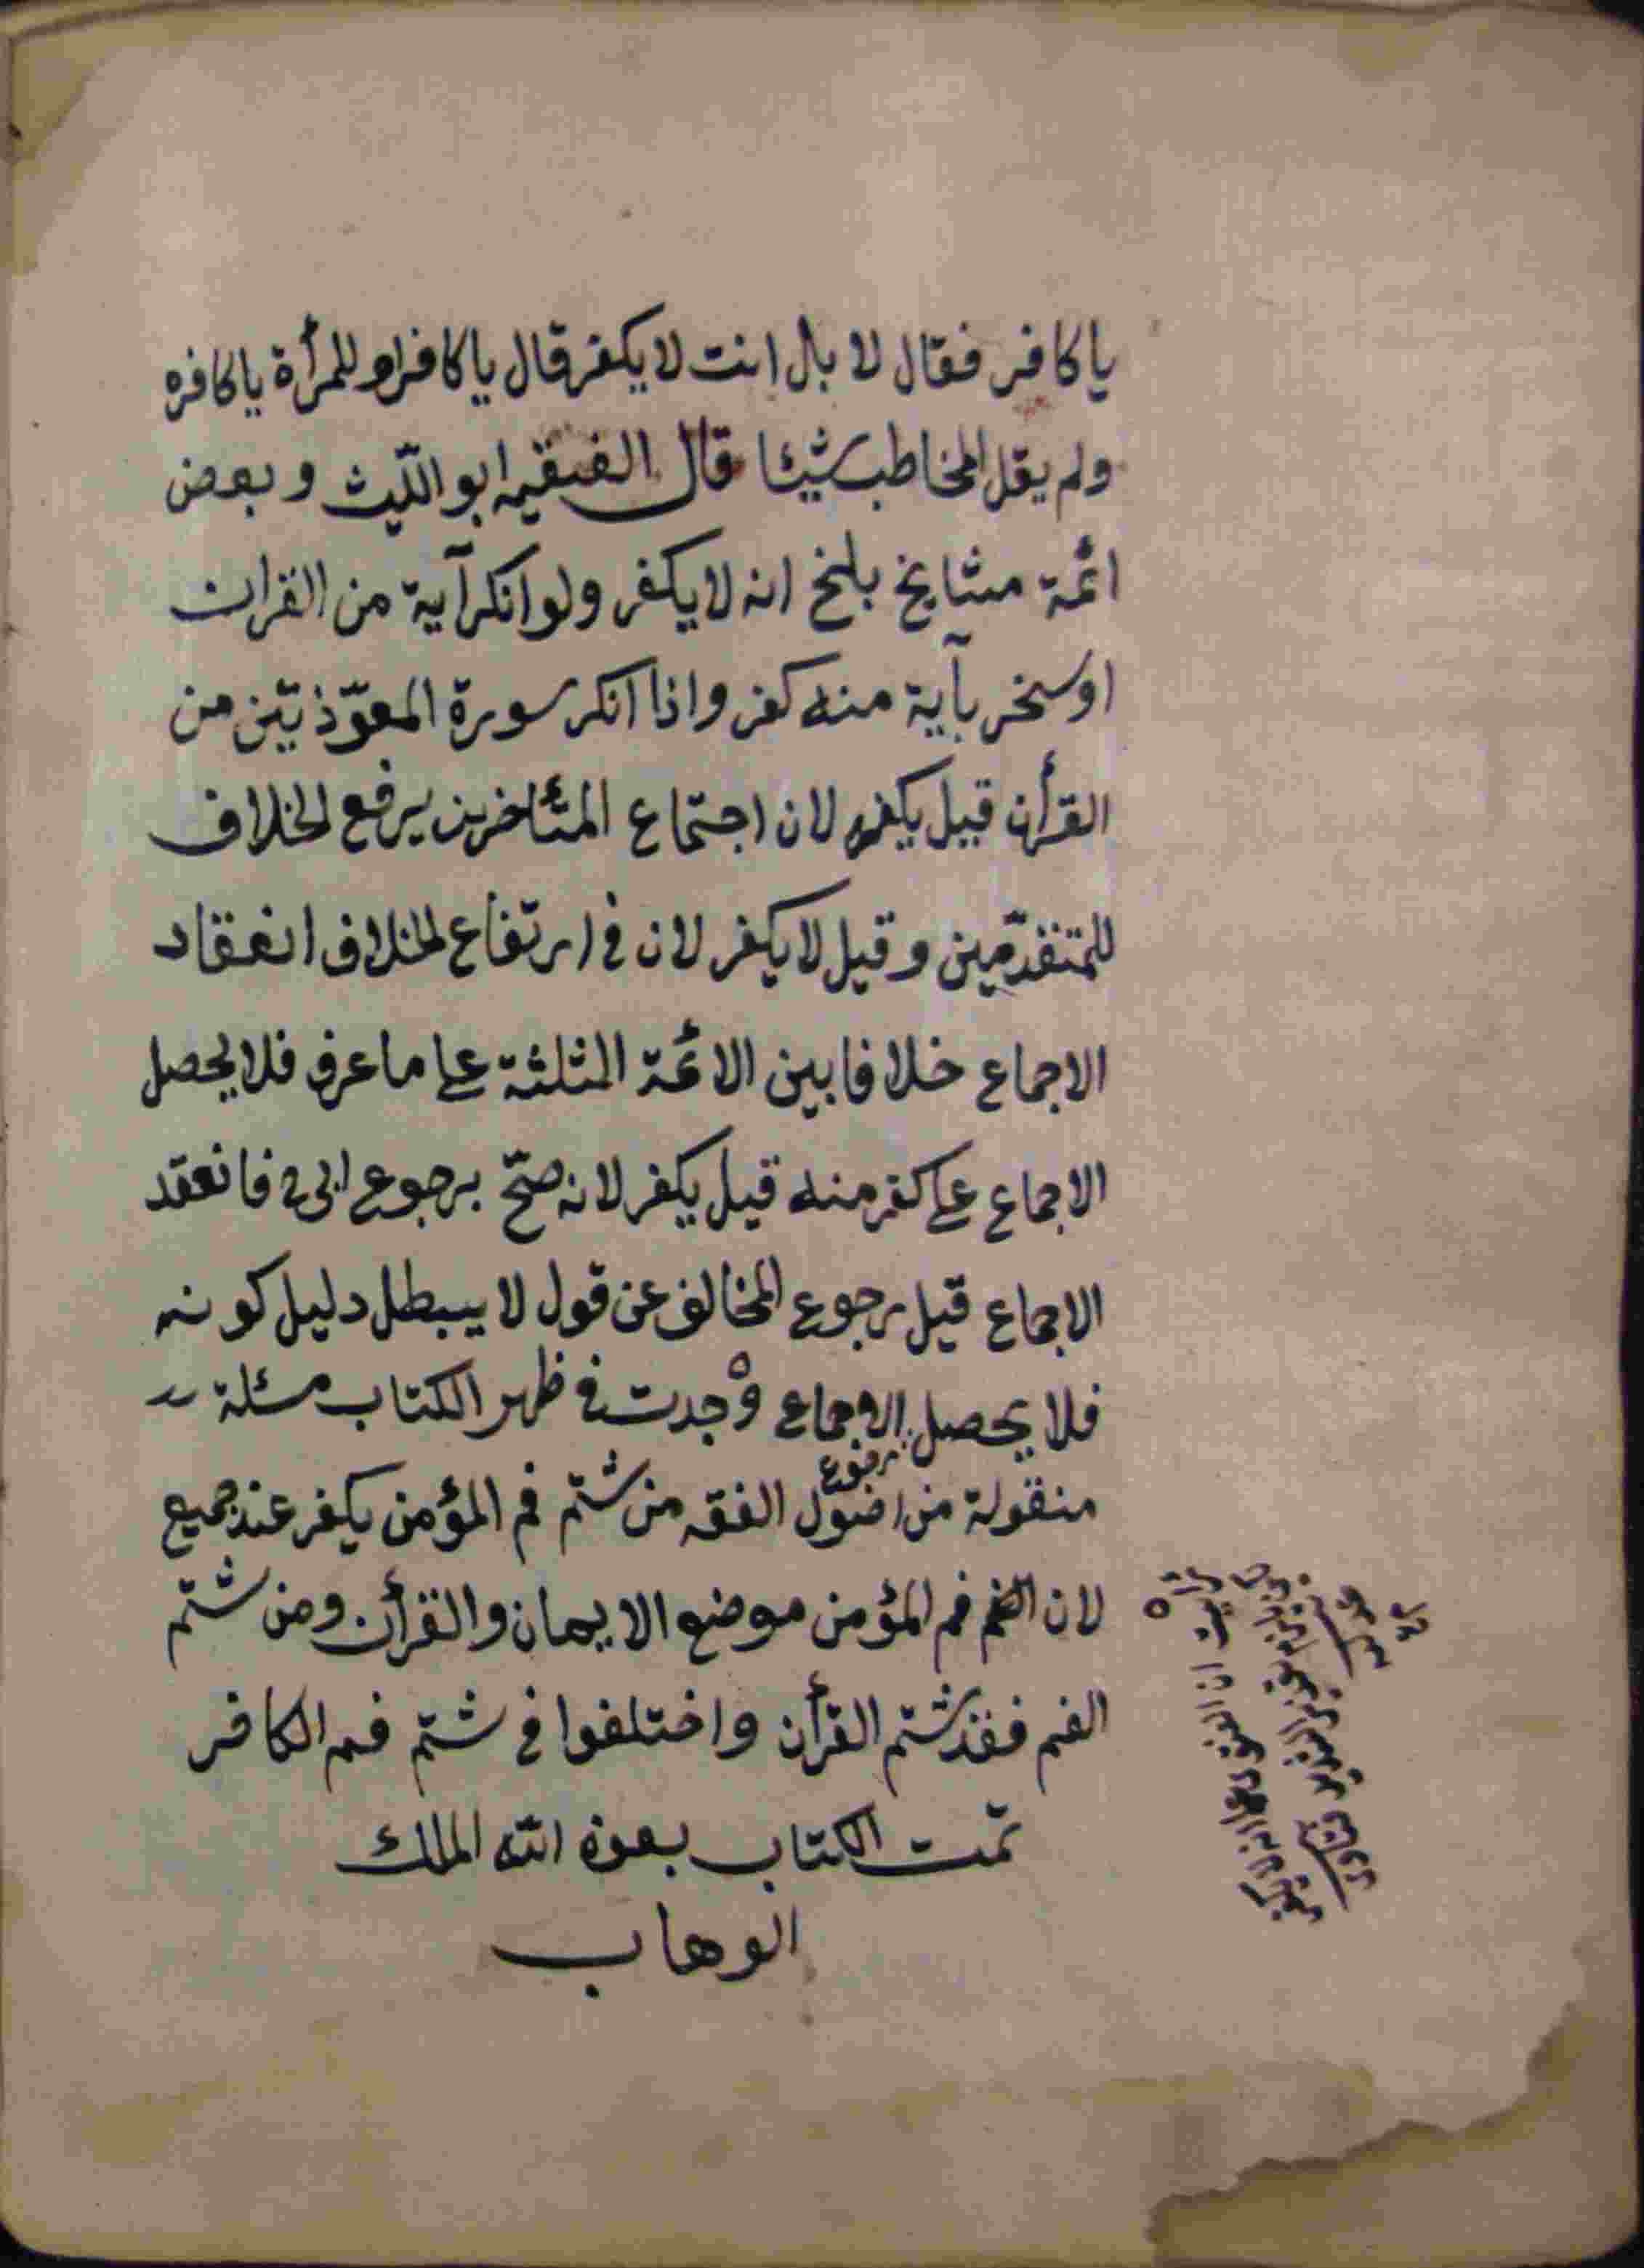 ياكافر فقال لا بل انت لا يكفر قال ياكافر او للمرأة ياكافره
ولم يقل المخاطب شيئا قال الفقيه ابو اللّيث وبعض
ائمة مشايخ بلخ انه لا يكفر ولو انكر آية من القران
اوسخر بآية منه كفر واذا انكر سورة المعوّذتين من
القرأن قيل يكفر لان اجتماع المتأخرين يرفع الخلاف
للمتقدّمين وقيل لا يكفر لان في ارتفاع الخلاف انعقاد
الاجماع خلافا بين الائمة الثلثة على ما عرف فلا يحصل
الاجماع على كفر منه قيل يكفر لانه صحّ برجوع ابى فانعقد
الاجماع قيل رجوع المخالف عن قول لا يبطل دليل كونه
فلا يحصل الاجماع وجدت في ظهر الكتاب مسئلة
مرفوع
منقولة من اصول الفقه من شتم فم المؤمن يكفر عند جميع
لان الفم فم المؤمن موضع الايمان والقرأن ومن شتم
الفم فقد شتم القرأن واختلفوا في شتم فم الكافر
تمّت الكتاب بعون الله الملك
الوهاب